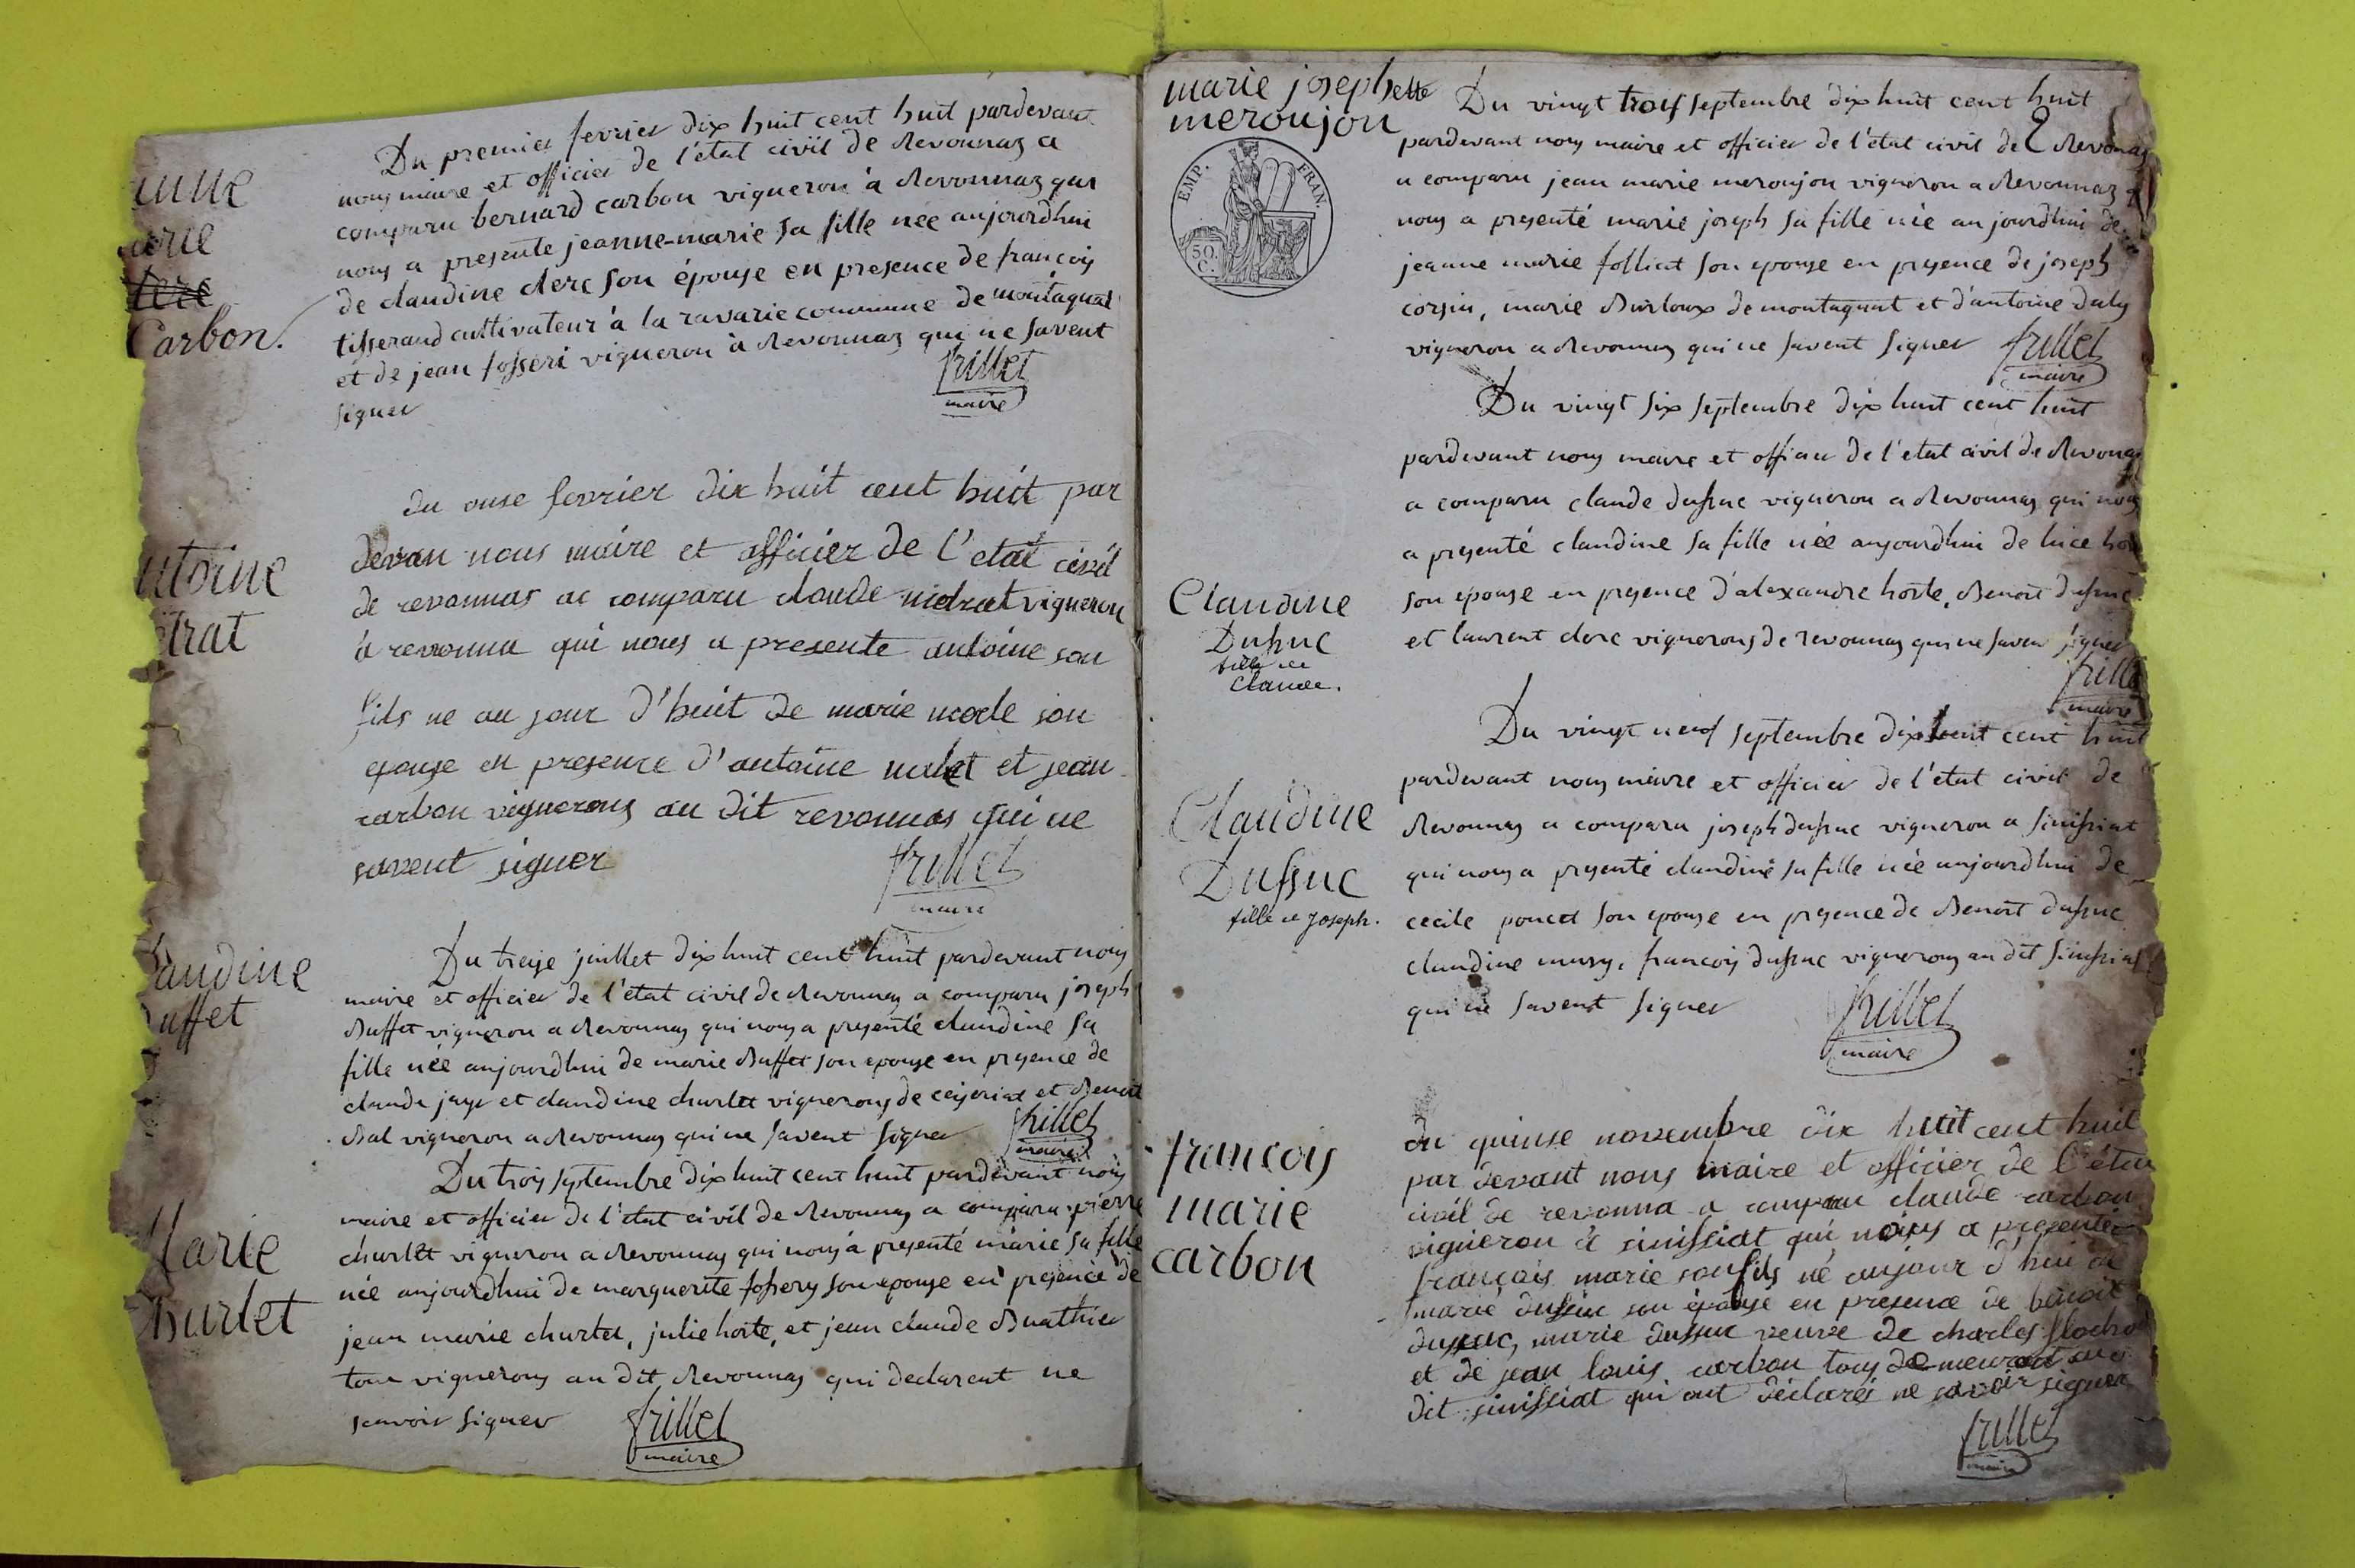 Carbon.
Du premier fevrier dix huit cent huit pardevant
nous maire et officier de l'état civil de Revonnaz a
comparu bernard carbon vigneron à Revonnaz qui
nous a presenté jeanne-marie sa fille née aujourdhui
de claudine clerc son épouse en presence de françois
tisserand cultivateur à la ravarie commune de montagnat
et de jean fosseri vigneron à Revonnaz qui ne savent
signer
frillet
maire
du onse fevrier dix huit cent huit par
devan nous maire et officier de l'etat civil
de revonnas ac comparu claude vigneron
a revonna qui nous a presente antoine son
fils ne au jour d'huit de marie son
epouse en presence d'antoine et jean
carbon vignerons au dit revonnas qui ne
savent signer
frillet
maire
audine
uffet
Du treize juillet dix huit cent huit pardevant nous
maire et officier de l'état civil de Revonnaz a comparu joseph
Buffet vigneron a Revonnaz qui nous a presenté claudine sa
fille née aujourdhui de marie Buffet son epouse en presence de
claude jayr et claudine churlet vignerons de ceyzeriat et Benoit
Bal vigneron a Revonnaz qui ne savent signer
frillet
maire
Marie
hurlet
Du trois septembre dix huit cent huit pardevant nous
maire et officier de l'état civil de Revonnaz a comparu pierre
churlet vigneron a Revonnaz qui nous a presenté marie sa fille
née aujourdhui de marguerite fossery son epouse en presence de
jean marie churlet, julie horte, et jean claude Buathier
tous vignerons au dit Revonnaz qui declarent ne
scavoir signer
frillet
maire
marie josephette
meroujon
EMP. FRAN.
50.
C.
Du vingt trois septembre dix huit cent huit
pardevant nous maire et officier de l'état civil de Revonaz
a comparu jean marie meroujon vigneron a Revonnaz q
nous a presenté marie joseph sa fille née au jourdhui de
jeanne marie folliat son epouse en presence de joseph
corsin, marie Burloux de montagnat et d'antoine
vigneron a Revonnaz qui ne savent signer
frillet
maire
Claudine
Dufsuc
fille de
Claude.
Du vingt six septembre dix huit cent huit
pardevant nous maire et officier de l'état civil de Revonaz
a comparu claude dufsuc vigneron a Revonnaz qui nous
a presenté claudine sa fille née aujourdhui de luce
son epouse en presence d'alexandre horte, Benoit dufsuc
et laurent clerc vignerons de revonnaz qui ne saven signer
frillet
maire
Claudine
Dufsuc
fille de joseph.
Du vingt neuf septembre dix huit cent huit
pardevant nous maire et officier de l'état civil de
Revonnaz a comparu joseph dufsuc vigneron a sinifsiat
qui nous a presenté claudine sa fille née aujourdhui de
cecile poncet son epouse en presence de Benoit dufsuc
claudine musy, francois dufsuc vignerons au dit sinifsiat
qui ne savent signer
frillet
maire
francois
marie
carbon
du quinse novembre dix huit cent huit
par devant nous maire et officier de l'éta
civil de revonna a comparu claude carbon
vigneron à sinifsiat qui nous a presenté
françois marie son fils né aujour d'hui de
marie dufsuc son épouse en presence de benoit
dufsuc, marie dufsuc veuve de charles
et de jean louis carbon tous demeurant au
dit sinifsiat qui ont déclarés ne savoir signer
frillet
maire